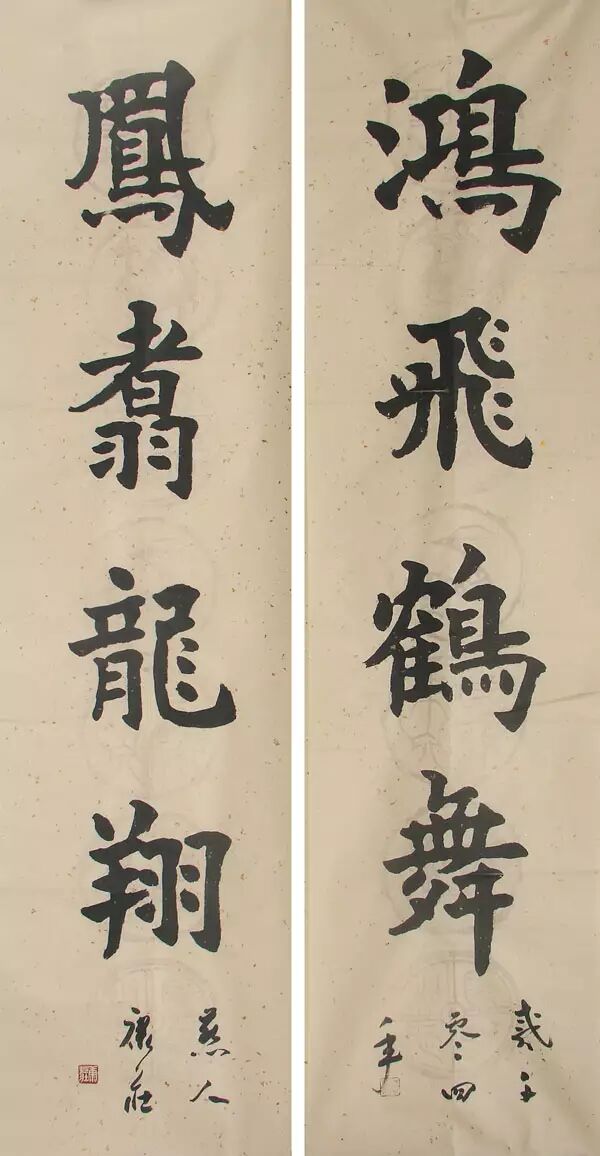 鴻飛鶴舞
貳千
零四
年
鳳翥龍翔
燕人
康庄